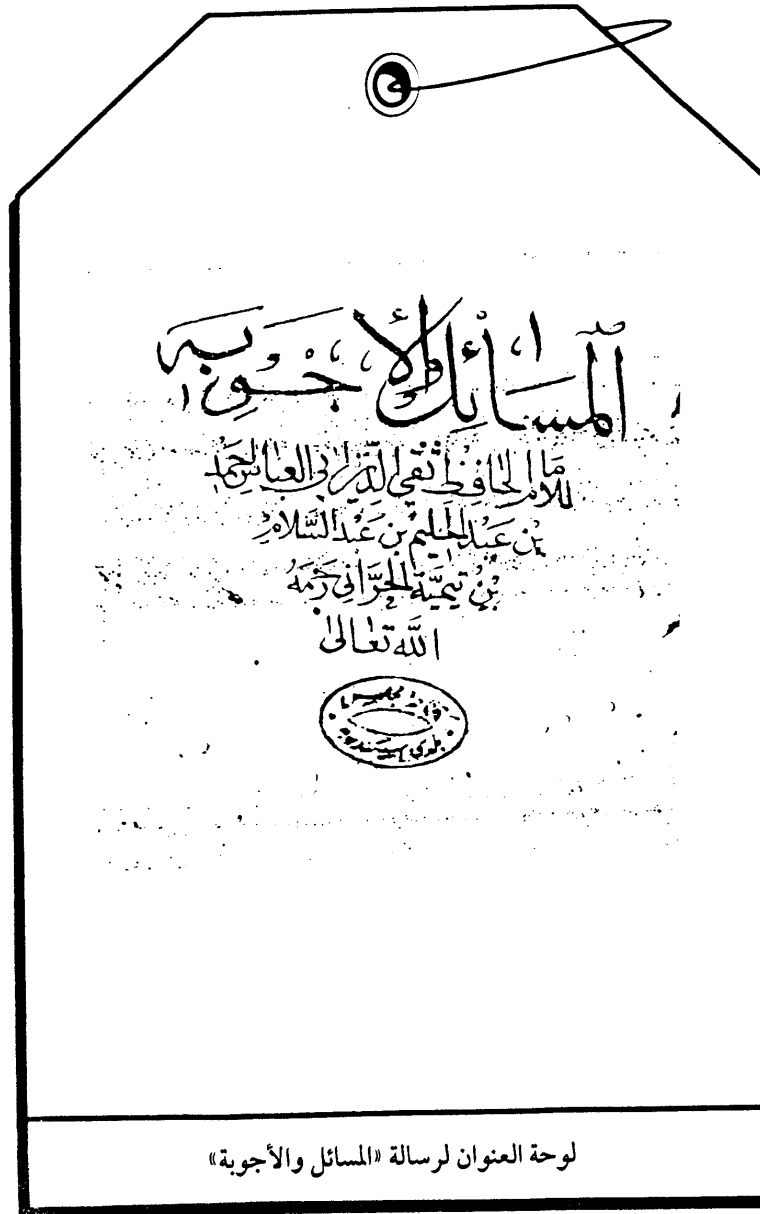 المسائل والأجوبة
للامام الحافظ تقي الدين ابي العباس احمد
بن عبد الحليم بن عبد السلام
بن تيمية الحراني رحمه
الله تعالى
بلدي
لوحة العنوان لرسالة «المسائل والأجوبة»